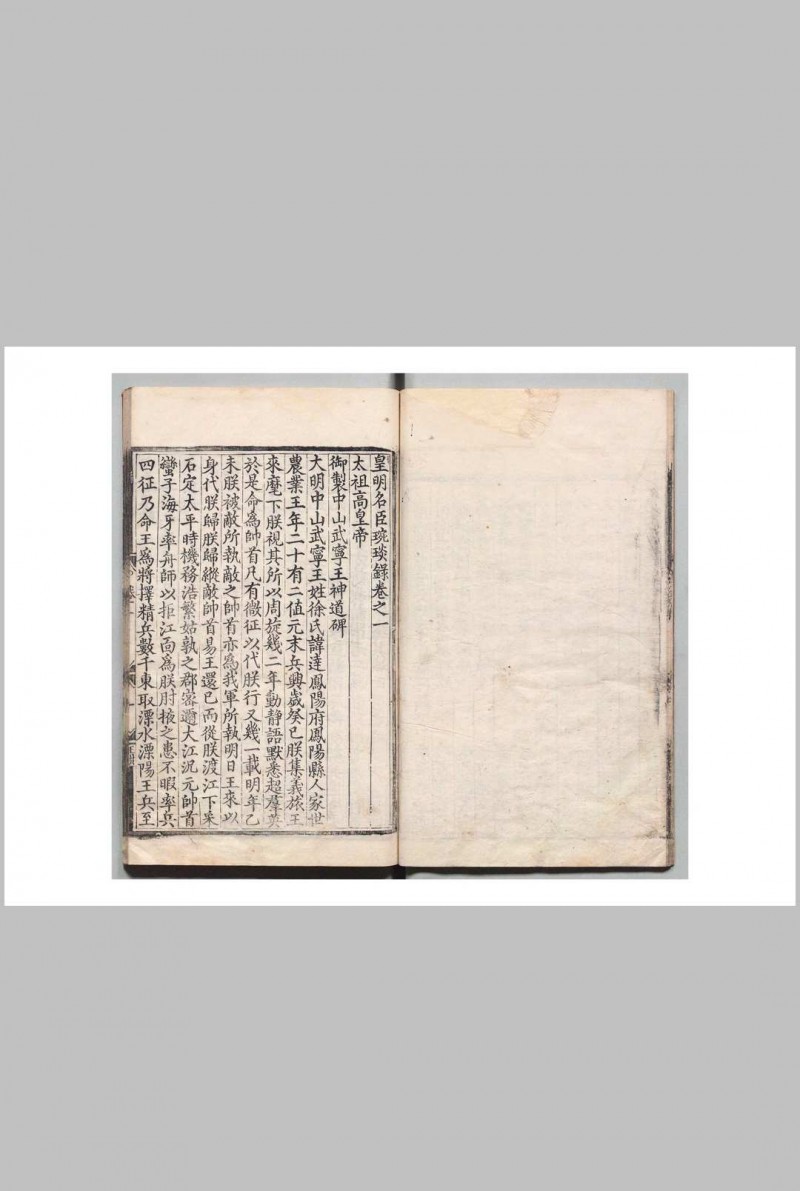 皇明名臣琬琰錄卷之一
太祖高皇帝
御製中山武寧王神道碑
大明中山武寧王姓徐氏諱達鳳陽府鳳陽縣人家世
農業王年二十有二值元末兵興歲癸巳朕集義旅王
來麾下朕視其所以周旋幾二年動靜語默悉超羣英
於是命爲帥首凡有微征以代朕行又幾一載明年乙
未朕被敵所執敵之帥首亦爲我軍所執明日王來以
身代朕歸朕歸縱敵帥首易王還已而從朕渡江下采
石定太平時機務浩繁姑孰之郡密邇大江況元帥首
蠻子海牙率舟師以拒江面爲朕肘掖之患不暇率兵
四征乃命王爲將擇精兵數千東取溧水溧陽王兵至